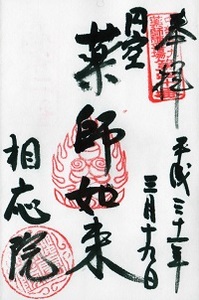 奉拝
平成三十一年
三月十六日
円空
薬師如来
相応院